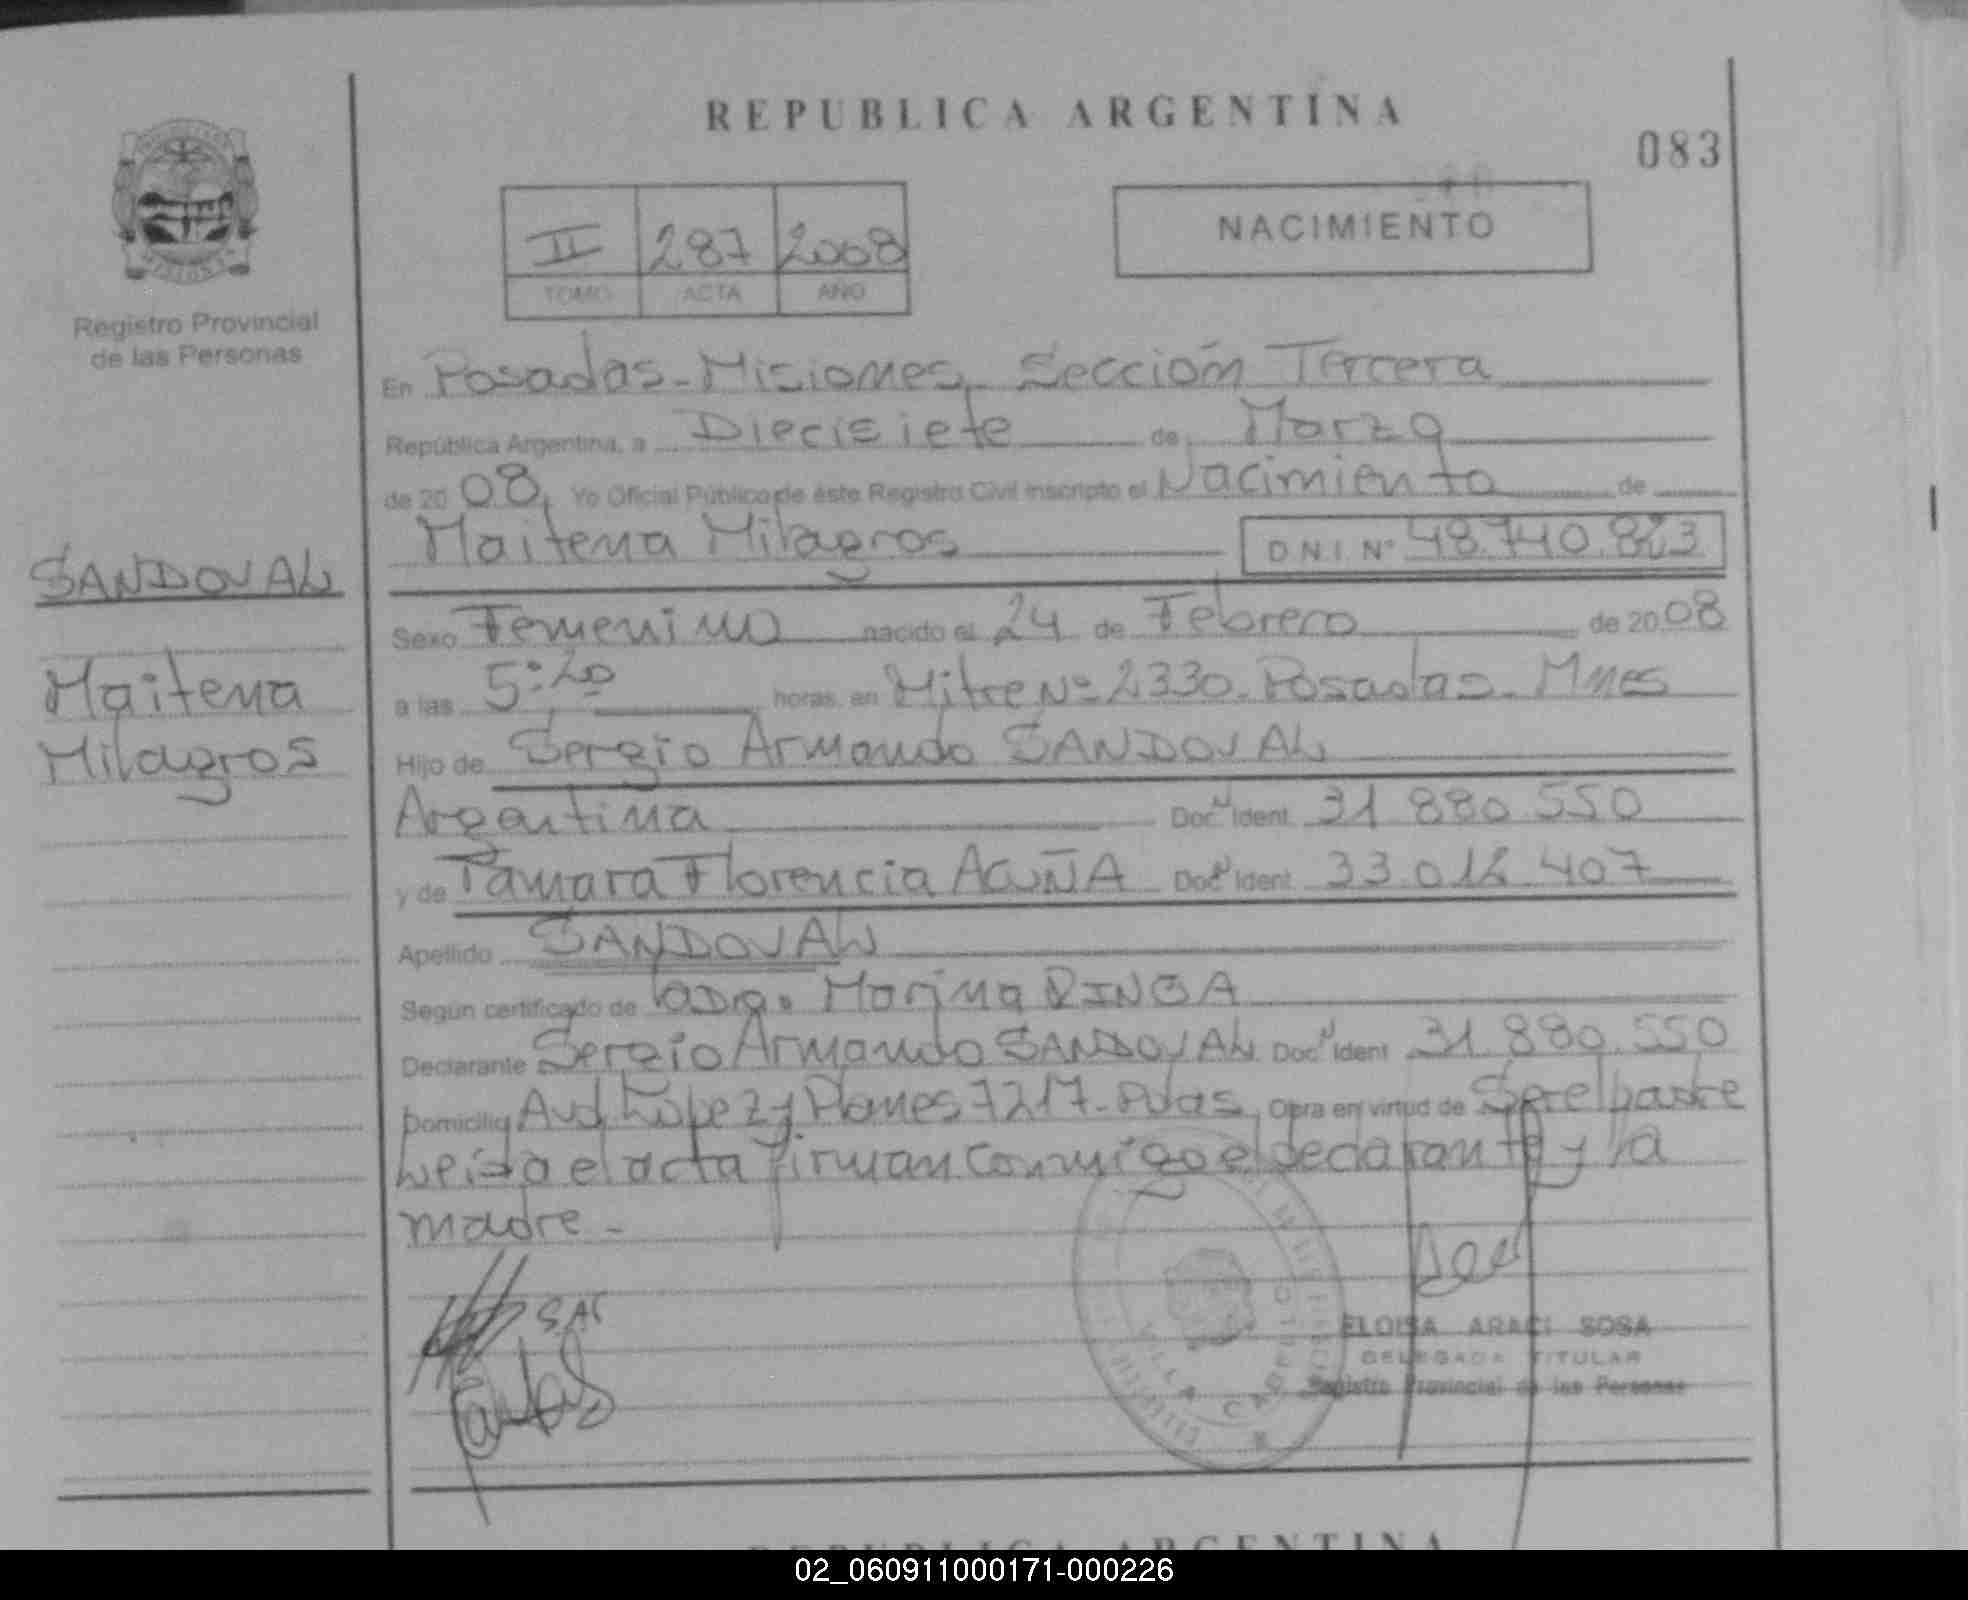 REPUBLICA ARGENTINA
083
II 287 2008
TOMO ACTA AÑO
NACIMIENTO
Registro Provincial
de las Personas
SANDOVAL
Maitena
Milagros
En Posadas - Misiones, Sección Tercera
República Argentina, a Diecisiete de Marzo
de 20 08, Yo Oficial Público de éste Registro Civil inscripto el Nacimiento de
Maitena Milagros D N I Nº 48.740.823
Sexo Femenino nacido el 24 de Febrero de 20 08
a las 5:20 horas, en Mitre Nº 2330. Posadas - Mnes
Hijo de Sergio Armando SANDOVAL
Argentina Doc. Ident. 31 880 550
y de Tamara Florencia ACUÑA Doc. Ident. 33.012.407
Apellido SANDOVAL
Según certificado de Marina
Declarante Sergio Armando SANDOVAL Doc. Ident 31.880.550
Domicilio Avd. López y Planes 7217 - Pdas, Obra en virtud de Ser el padre
Leída el acta firman conmigo el declarante y la
madre -
SAS
VILLA CABELLO
ELOISA ARACI SOSA
DELEGADA TITULAR
Registro Provincial de las Personas
REPUBLICA ARGENTINA
02_060911000171-000226